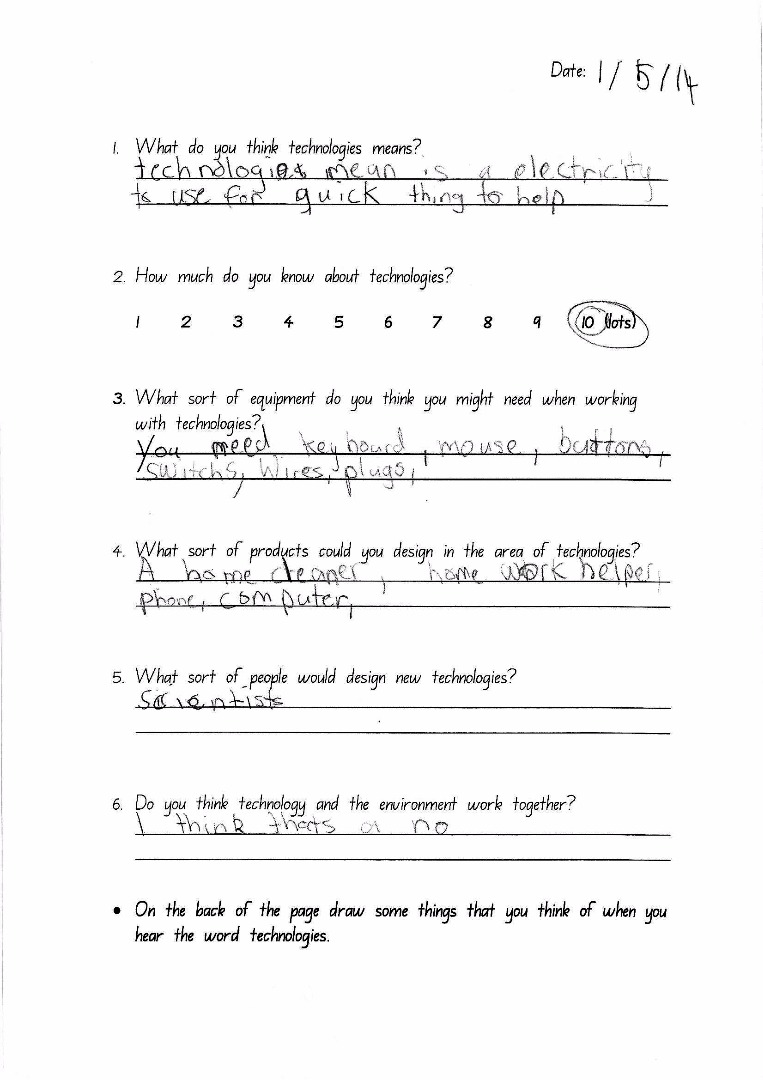 Date: 1/5/14
1. What do you think technologies means?
technologies mean is a electricity
ts use for quick thing to help
2. How much do you know about technologies?
1 2 3 4 5 6 7 8 9 10 (lots)
3. What sort of equipment do you think you might need when working
with technologies?
You need keyboard, mouse, buttons,
switchs, wires, plugs,
4. What sort of products could you design in the area of technologies?
A home cleaner, home work helper,
phone, computer,
5. What sort of people would design new technologies?
Scientists
6. Do you think technology and the environment work together?
I think thats a no
• On the back of the page draw some things that you think of when you
hear the word technologies.